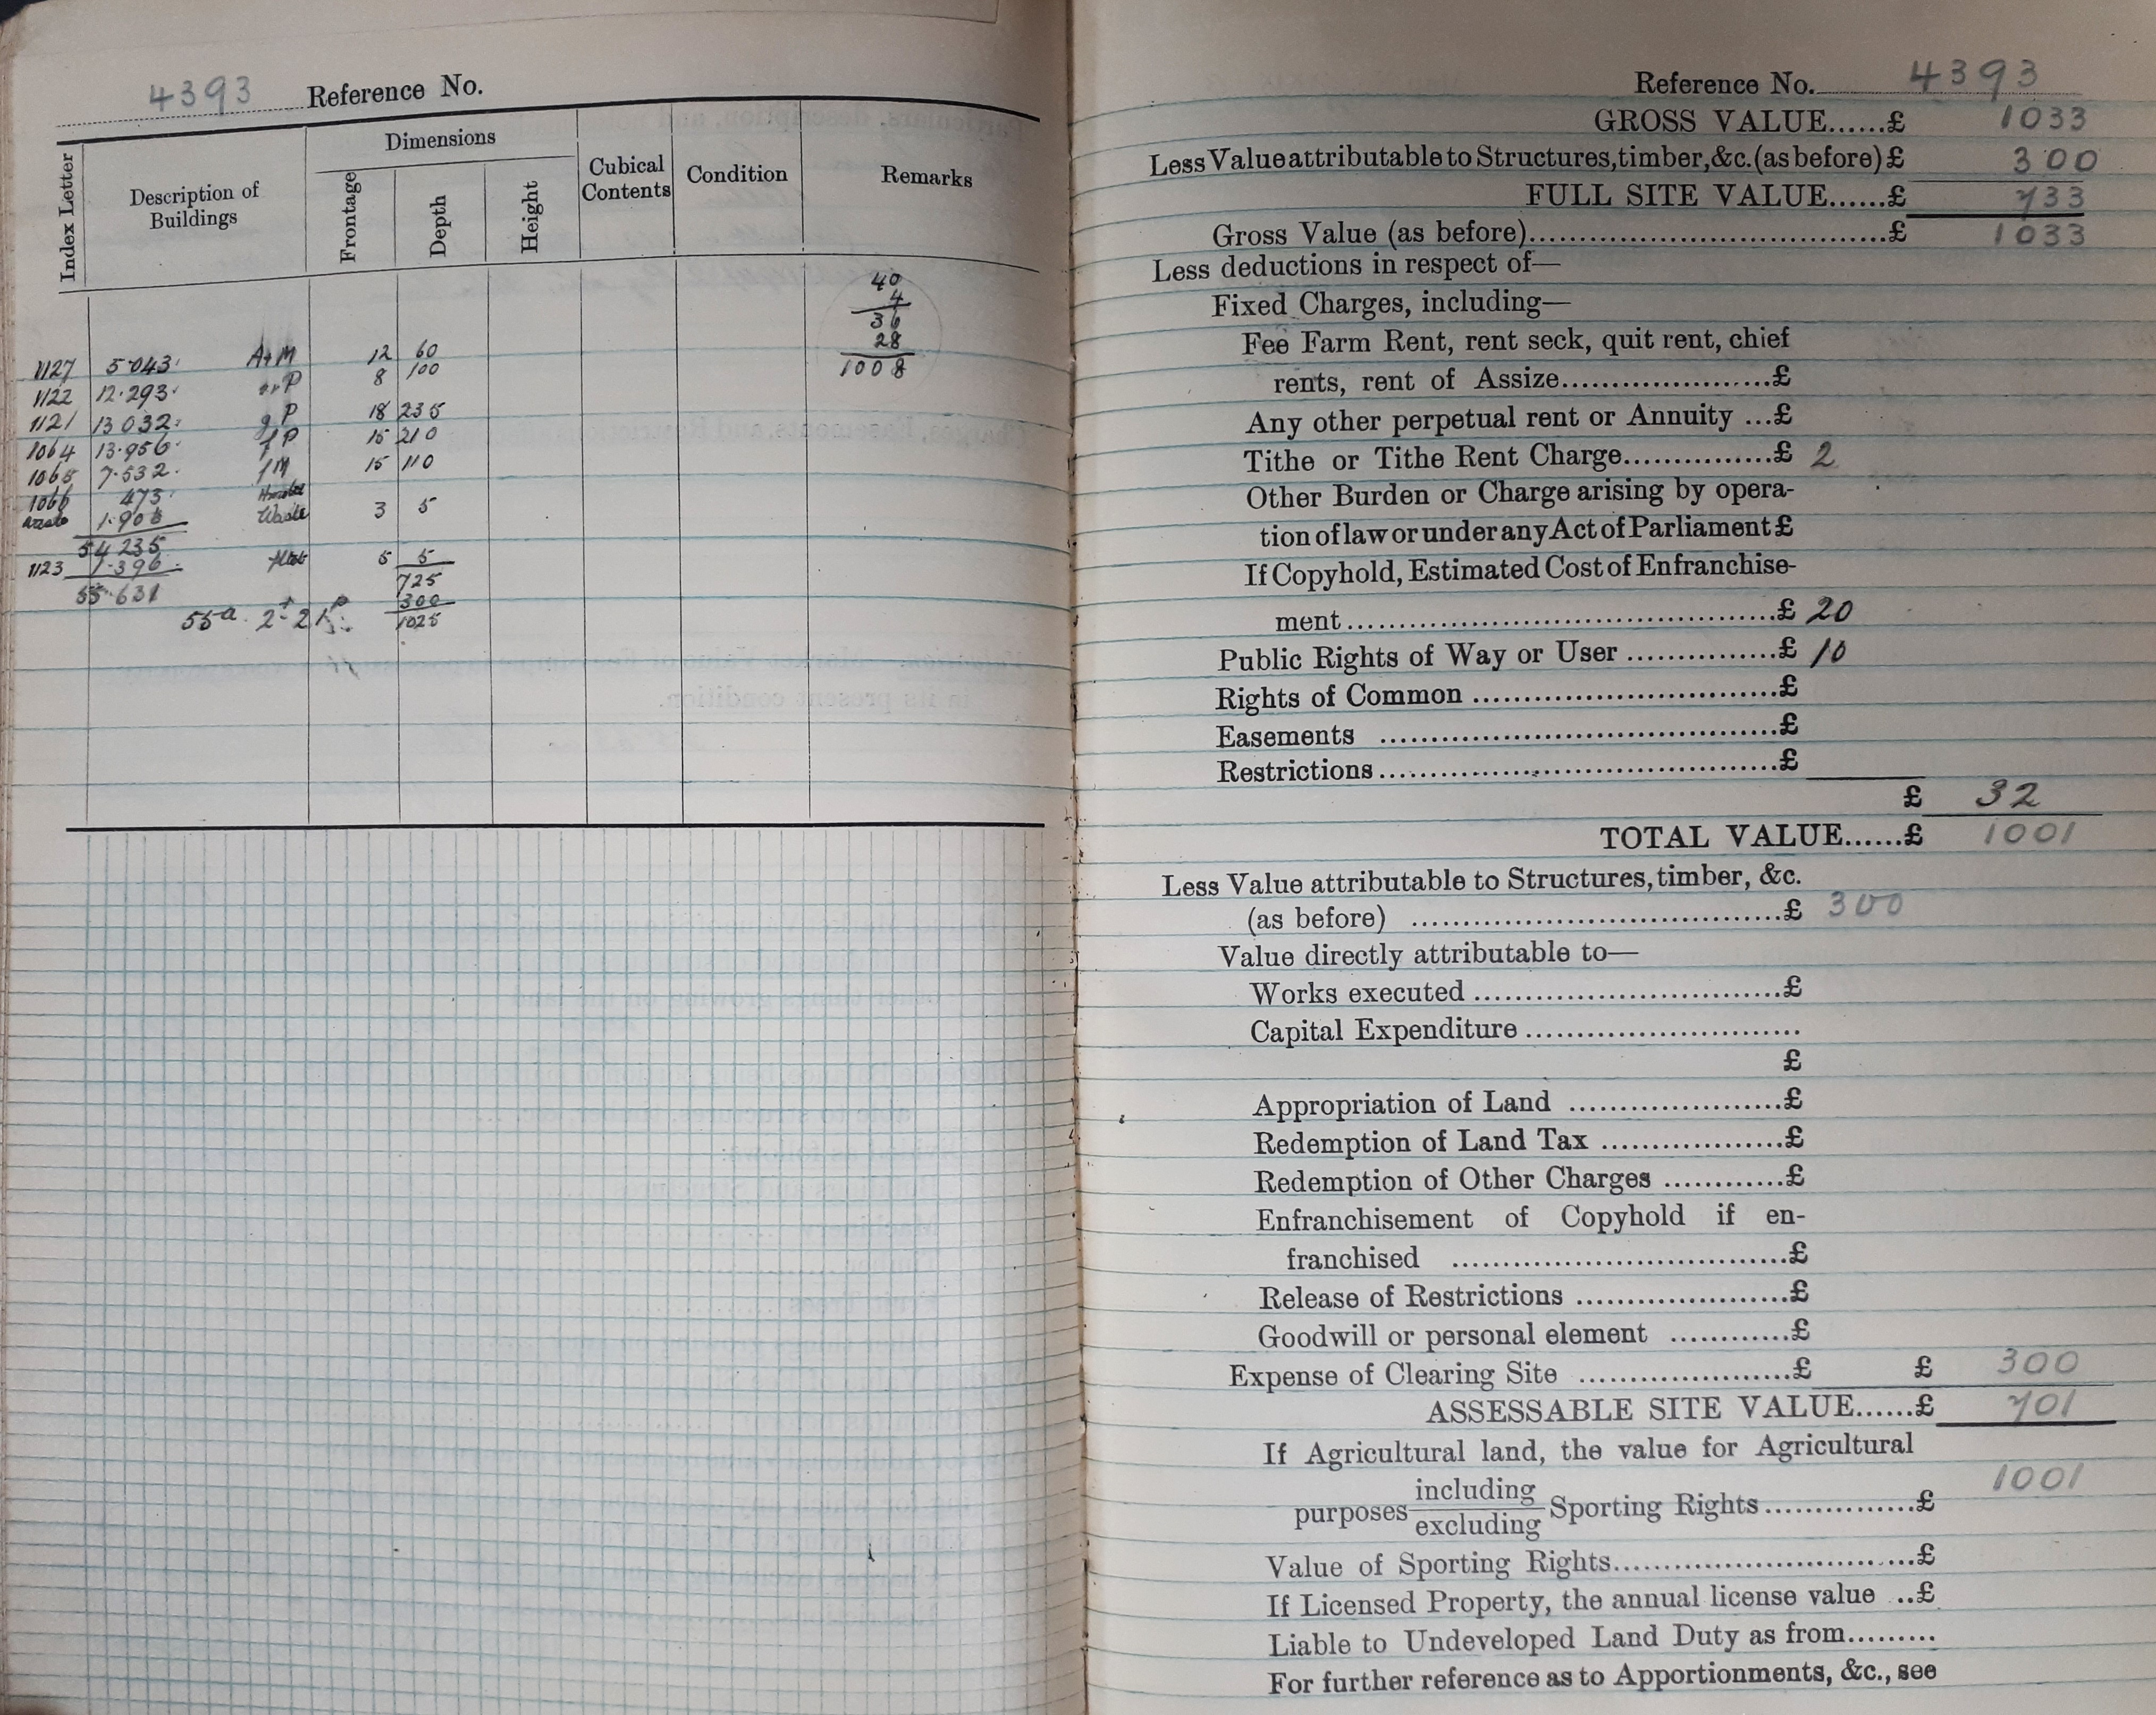 4393 Reference No.
Index Letter
Description of Buildings
Dimensions
Frontage
Depth
Height
Cubical Contents
Condition
Remarks
40
4
36
28
1008
1127 5.043 A+M 12 60
1122 12.293 P 8 100
1121 13.032 P 18 235
1064 13.956 P 15 210
1065 7.532 M 15 110
1066 473
1.906 Waste 3 5
54.235
1123 1.396 5 5
55.631 725
300
55a. 2r 2 P 1025
Reference No. 4393
GROSS VALUE......£ 1033
Less Value attributable to Structures, timber, &c. (as before) £ 300
FULL SITE VALUE......£ 733
Gross Value (as before)......£ 1033
Less deductions in respect of—
Fixed Charges, including—
Fee Farm Rent, rent seck, quit rent, chief
rents, rent of Assize......£
Any other perpetual rent or Annuity ...£
Tithe or Tithe Rent Charge......£ 2
Other Burden or Charge arising by opera-
tion of law or under any Act of Parliament £
If Copyhold, Estimated Cost of Enfranchise-
ment......£ 20
Public Rights of Way or User......£ 10
Rights of Common......£
Easements......£
Restrictions......£
£ 32
TOTAL VALUE......£ 1001
Less Value attributable to Structures, timber, &c.
(as before)......£ 300
Value directly attributable to—
Works executed......£
Capital Expenditure......
£
Appropriation of Land......£
Redemption of Land Tax......£
Redemption of Other Charges......£
Enfranchisement of Copyhold if en-
franchised......£
Release of Restrictions......£
Goodwill or personal element......£
Expense of Clearing Site......£ £ 300
ASSESSABLE SITE VALUE......£ 701
If Agricultural land, the value for Agricultural
purposes including excluding Sporting Rights......£ 1001
Value of Sporting Rights......£
If Licensed Property, the annual license value ..£
Liable to Undeveloped Land Duty as from.........
For further reference as to Apportionments, &c., see